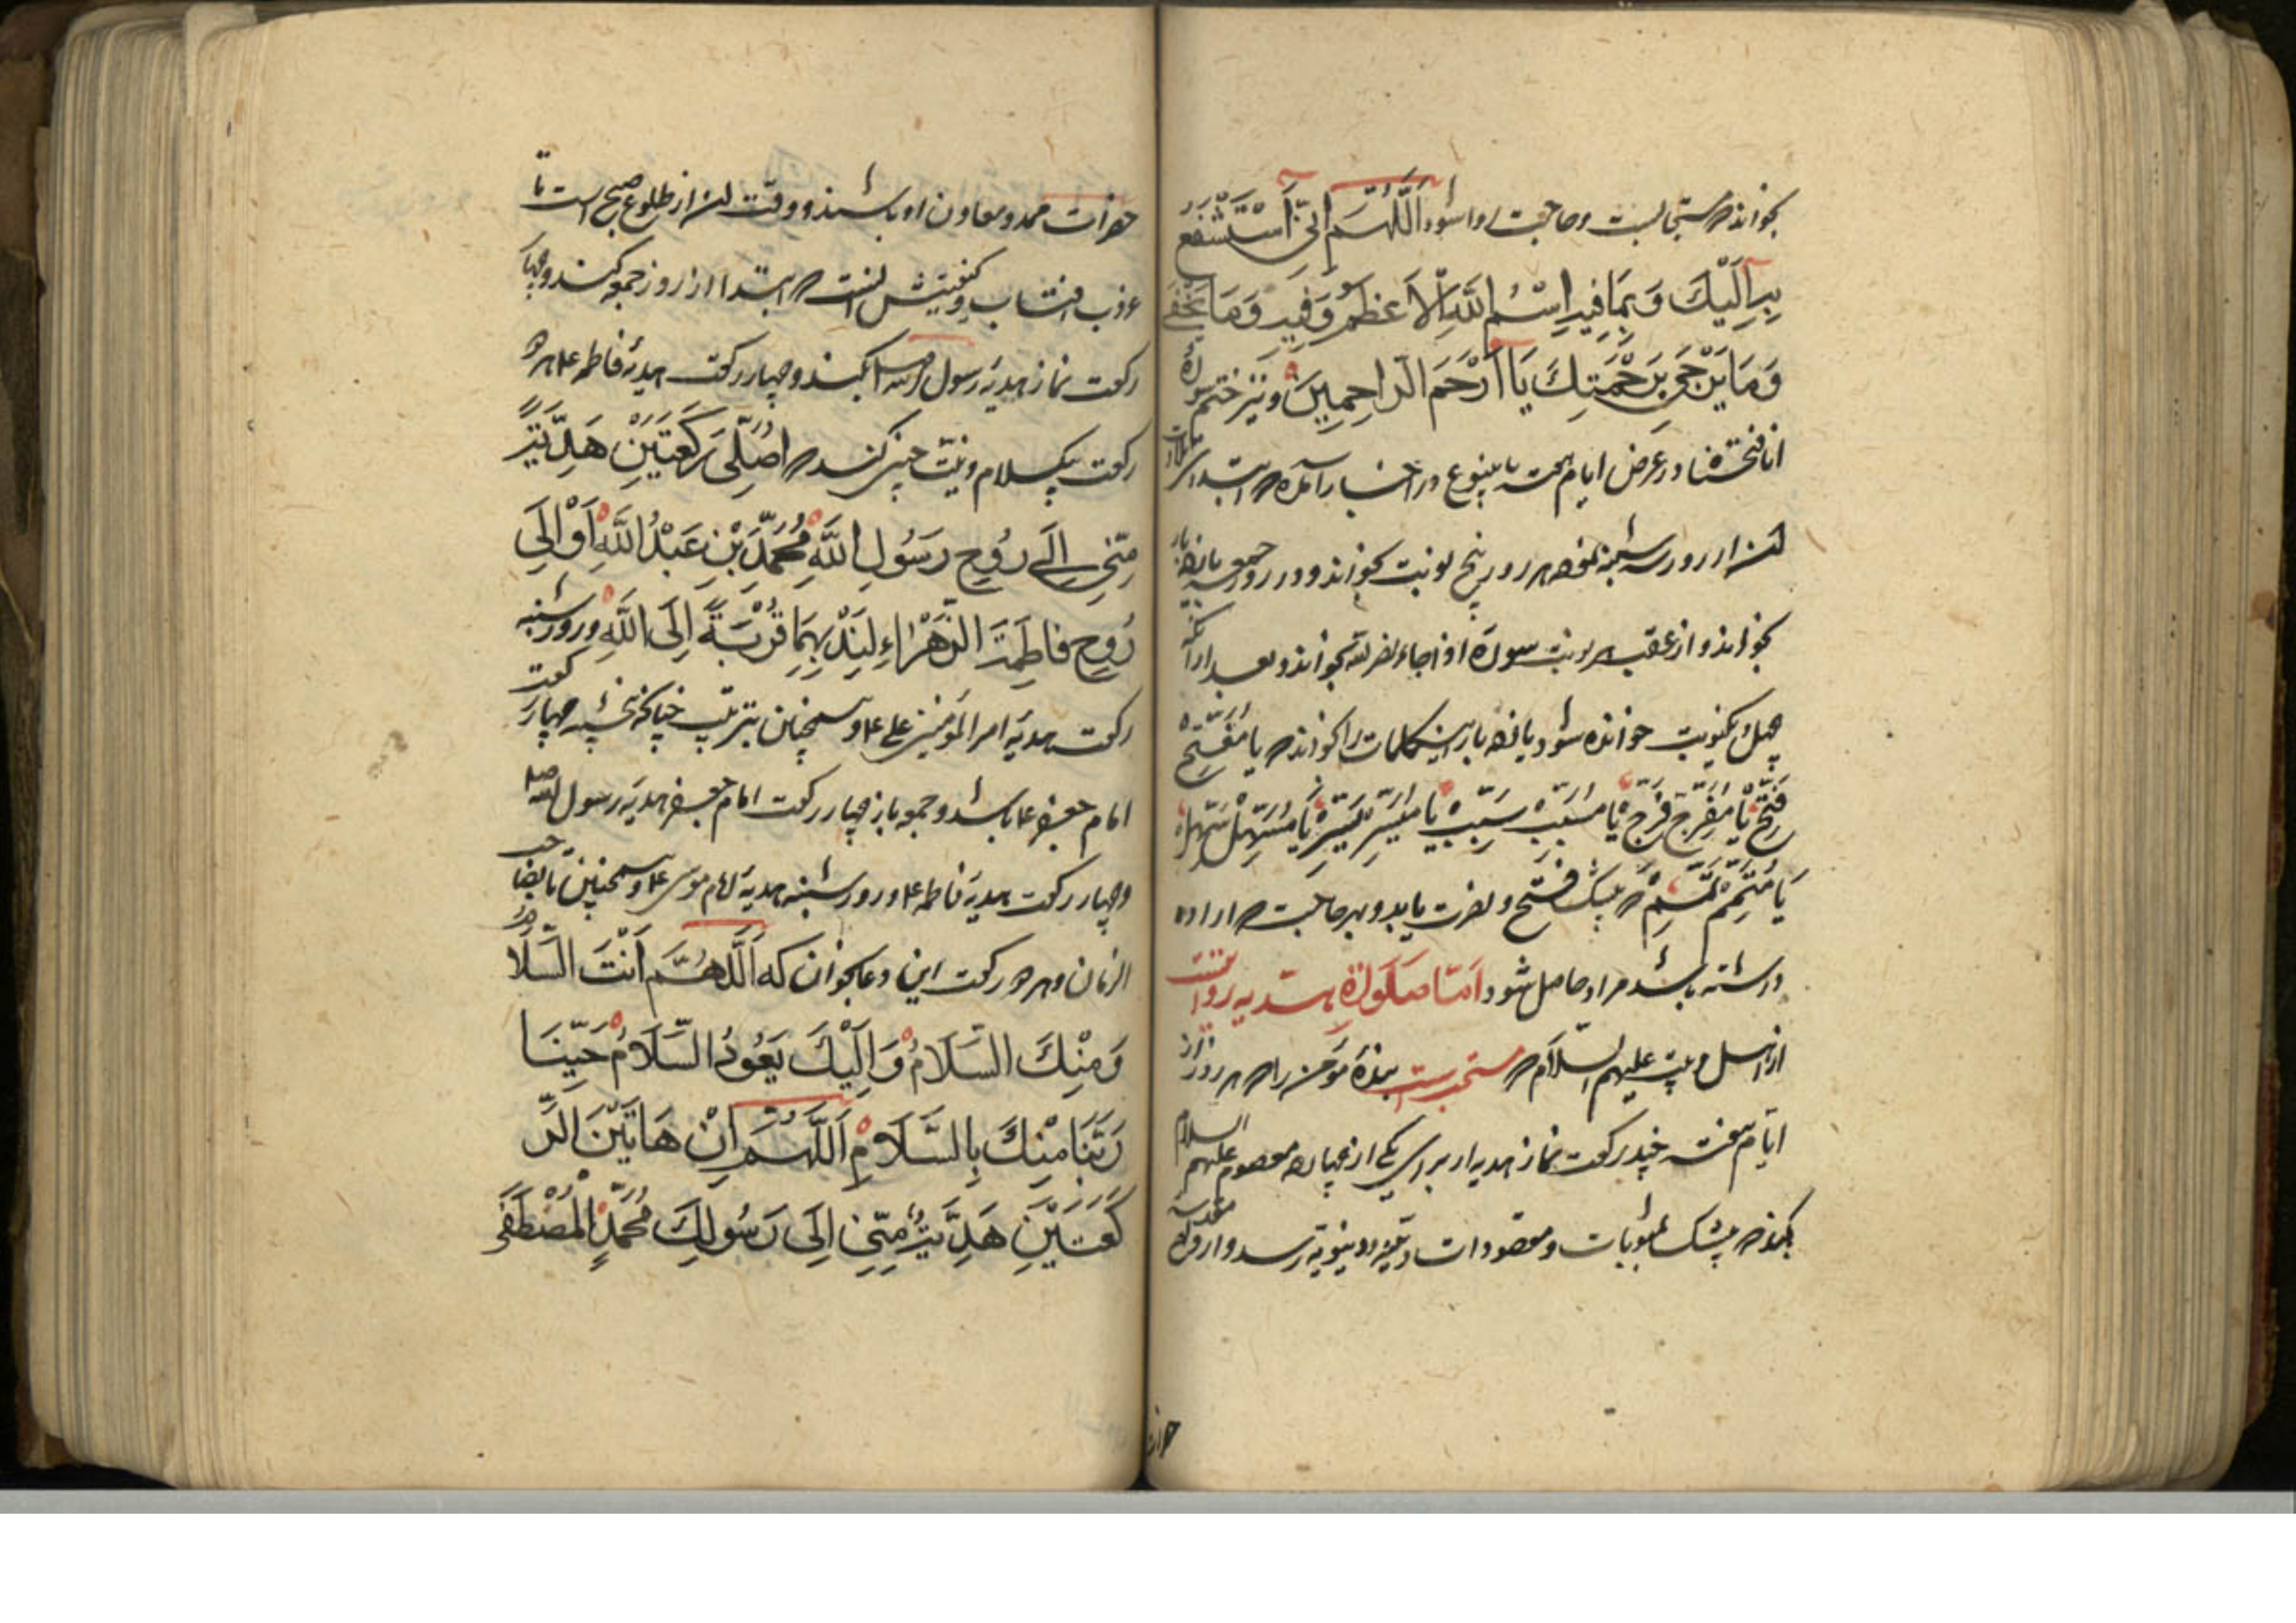 بخواند که مستجابست و حاجت او روا شود اَللّٰهُمَّ اِنّی اَسْتَشْفِعُ
بِهِ اِلَیْكَ وَ بِمَا فِیهِ اِسْمُ اللهِ الْاَعْظَمُ وَ فِیهِ وَ مَا یُخْفٰی
وَ مَا یُرْجٰی بِرَحْمَتِكَ یَا اَرْحَمَ الرَّاحِمِینَ و نیز ختم سورۀ
انا فتحنا در عرض ایام هفته باینوع در اخبار آمده که ابتدای
از روز سه شنبه نموده هر روز پنج نوبت بخواند و در روز جمعه یازده بار
بخواند و از عقب هر نوبت سوره اذا جاء نصر الله بخواند و بعد از آنکه
چهل یکنوبت خوانده شود یازده بار این کلمات را بخواند که یا مُفَتِّحْ
فَتِّحْ یا مُفَرِّجْ فَرِّجْ یا مُسَبِّبْ سَبِّبْ یا مُیَسِّرْ یَسِّرْ یا مُسَهِّلْ سَهِّلْ
یَا مُتَمِّمْ تَمِّمْ که بیشك فتح و نصرت یابد و بهر حاجت که اراده
داشته باشد مراد حاصل شود اَمّا صَلَوٰة هدیه روایتست
از اهل بیت علیهم السلام که مستحب است بندۀ مؤمن را که هر روز از
ایام هفته چند رکعت نماز هدیه از برای یکی از چهارده معصوم علیهم السلام
بکند که بیشك بمثوبات و مقصودات دینیه و دنیویه رسد و ارواح مقدسه
حضرات
حضرات ممد و معاون او باشند و وقت آن از طلوع صبح است تا
غروب افتاب و کیفیتش انست که ابتدا از روز جمعه کند و چهار
رکعت نماز هدیۀ رسول الله بکند و چهار رکعت هدیۀ فاطمه ع هر دو
رکعت بیکسلام و نیت چنین کند که اُصَلِّی رَکْعَتَیْنِ هَدِیَّةً
مِنّی اِلٰی رُوحِ رَسُولِ اللهِ مُحَمَّدِ بْنِ عَبْدُ اللهِ اَوْ اِلَی
رُوحِ فَاطِمَةَ الزَّهْرَاءِ لِنَدْبِهِمَا قُرْبَةً اِلَی اللهِ و روز شنبه چهار
رکعت هدیۀ امیر المؤمنین علی ع و همچنین بترتیب چنانکه پنجشنبه چهار رکعت
امام جعفر ع باشد و جمعه باز چهار رکعت هدیۀ رسول الله
و چهار رکعت هدیۀ فاطمه ع و روز شنبه هدیۀ امام موسی ع و همچنین تا بصاحب
الزمان و هر دو رکعت این دعا بخوان که اَللّٰهُمَّ اَنْتَ السَّلَامُ
وَ مِنْكَ السَّلَامُ وَ اِلَیْكَ یَعُودُ السَّلَامُ حَیِّنَا
رَبَّنَا مِنْكَ بِالسَّلَامِ اَللّٰهُمَّ اِنْ هَاتَیْنَ الرَّ
کْعَتَیْنِ هَدِیَّةٌ مِنّی اِلَی رَسُولِكَ مُحَمَّدٍ الْمُصْطَفٰی